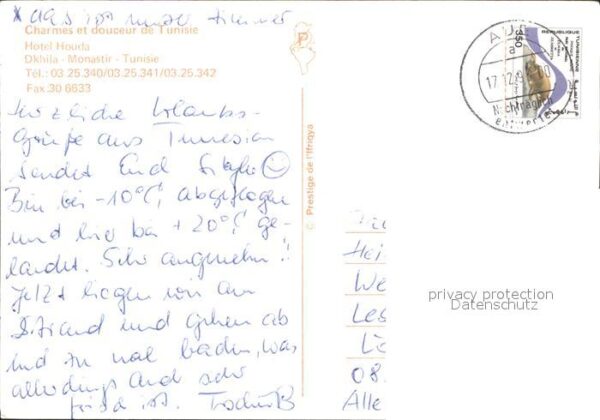 x das ist unser Zimmer
Charmes et douceur de Tunisie
Hotel Houda
Dkhila - Monastir - Tunisie
Tél.: 03.25.340/03.25.341/03.25.342
Fax.30 6833
Herzliche Urlaubs-
grüße aus Tunesien
sendet Euch
Bin bei -10°C abgeflogen
und hier bei +20°C ge-
landet. Sehr angenehm!!
Jetzt liegen wir am
Strand und gehen ab
und zu mal baden, was
allerdings auch sehr
frisch ist. Tschüß
© Prestige de l'Ifriqya
P
350
REPUBLIQUE TUNISIENNE
17.12.
Nachträglich
entwertet
Hei
We
Les
08.
Alle
privacy protection
Datenschutz